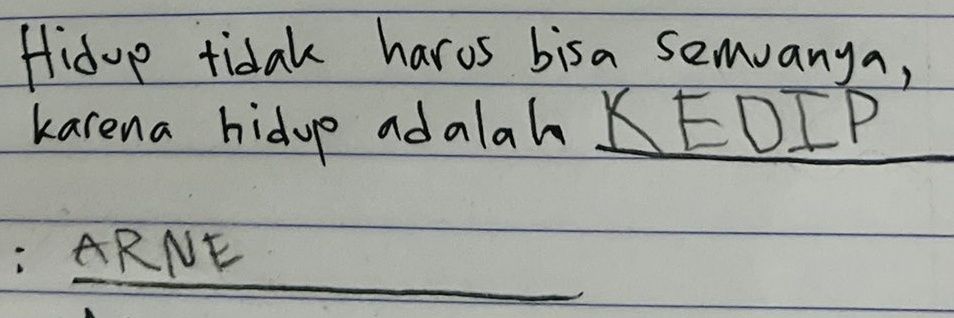 Hidup tidak harus bisa semuanya,
karena hidup adalah KEDIP
: ARNE